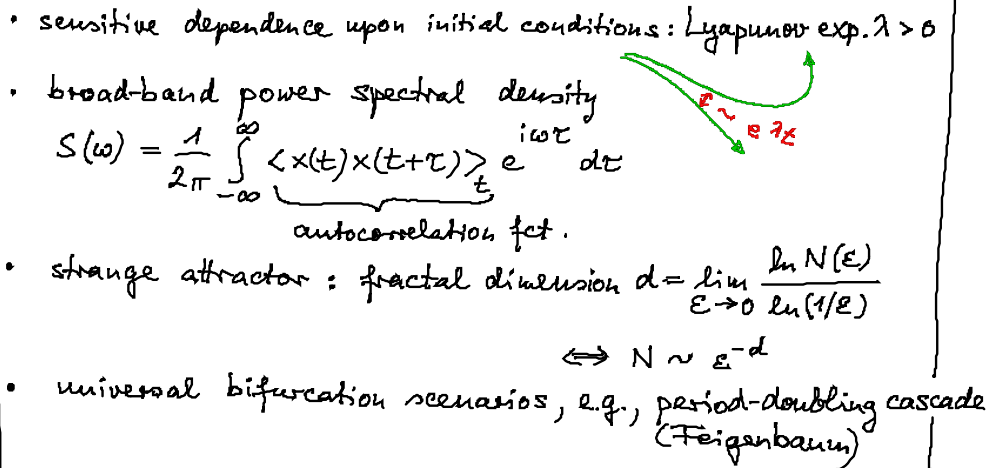 • sensitive dependence upon initial conditions: Lyapunov exp. λ > 0
• broad-band power spectral density
~ e^{λt}
S(ω) = 1/2π ∫_{-∞}^{∞} <x(t) x(t+τ)>_t e^{iωτ} dτ
autocorrelation fct.
• strange attractor: fractal dimension d = lim_{ε→0} ln N(ε) / ln(1/ε)
⇔ N ~ ε^{-d}
• universal bifurcation scenarios, e.g., period-doubling cascade
(Feigenbaum)